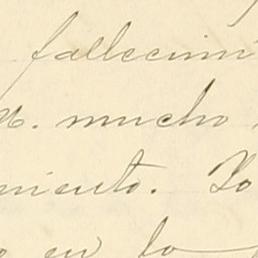 fallecimi
M. mucho
miento. Yo
o en lo